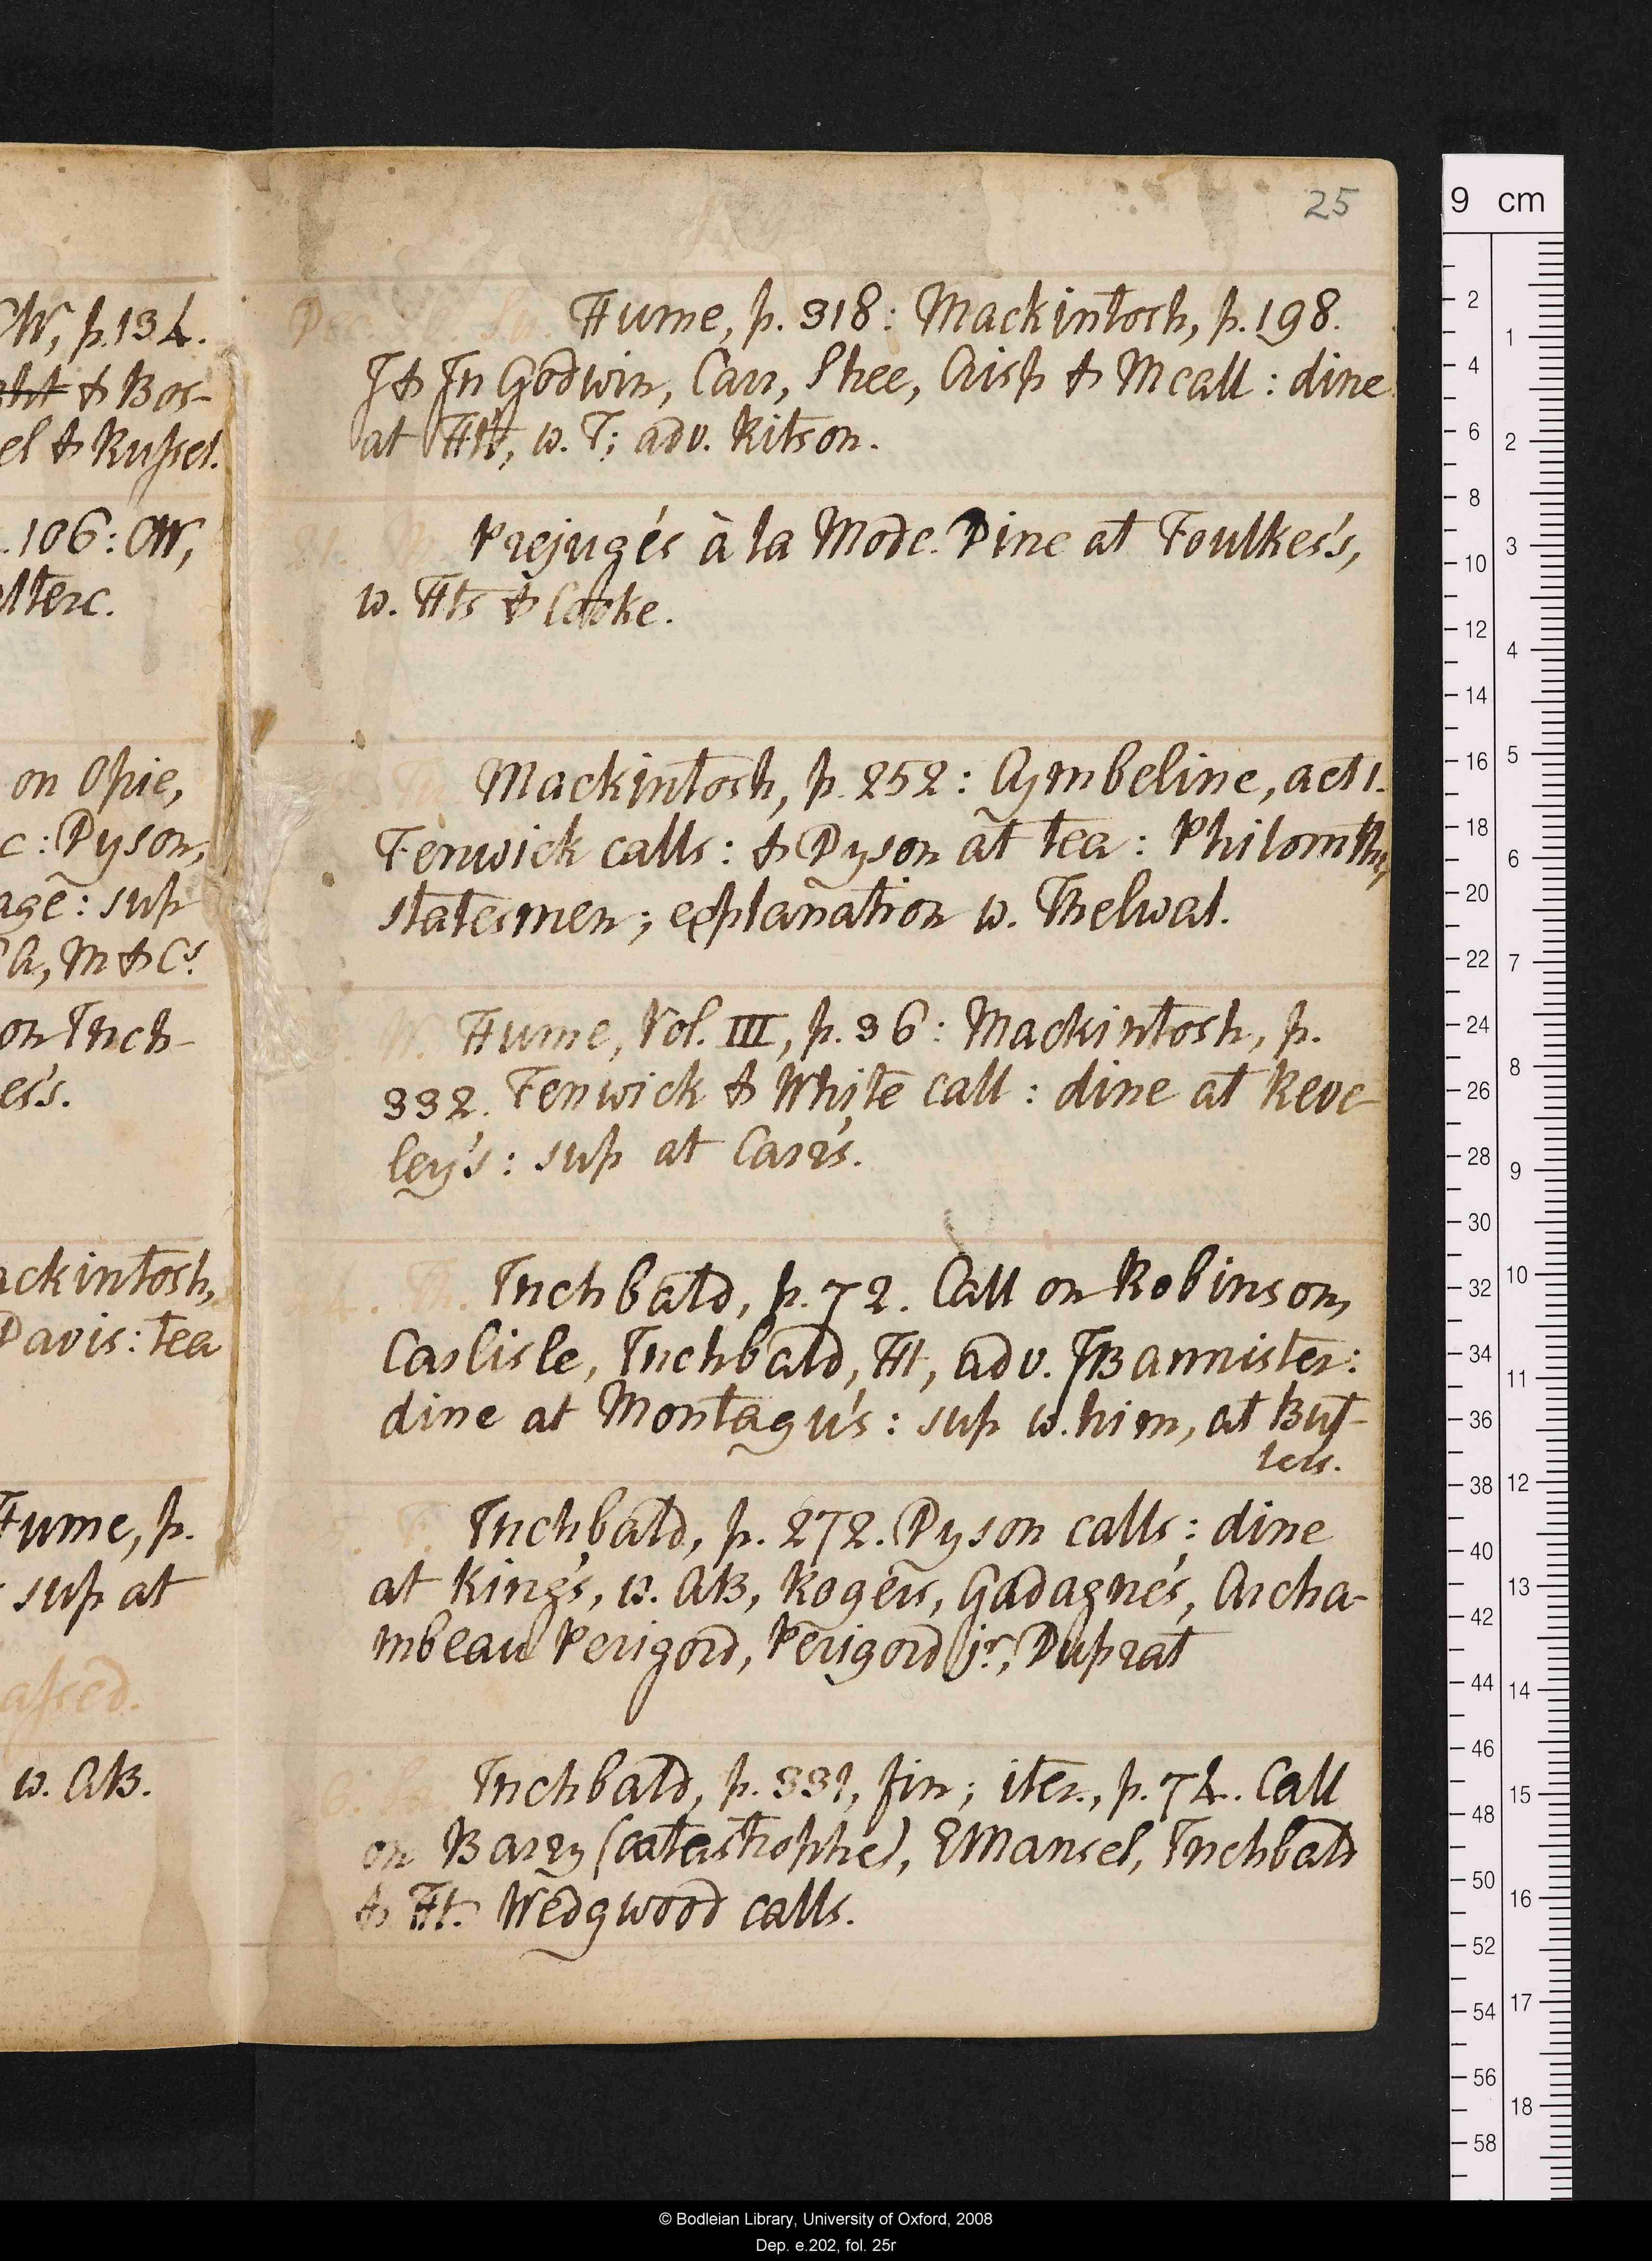 W, p. 134.
& Bos-
el & Russel.
. 106: CW,
on Opie,
c: Dyson,
age: sup
M & Cs.
on Inch-
es's.
ackintosh,
Davis: tea
Hume, p.
sup at
assed.
w. AB.
25
Hume, p. 318: Mackintosh, p. 198.
J & Jn Godwin, Carr, Shee, Crisp & Mcall: dine
at Ht's, w. T; adv. Ritson.
Prejugés à la Mode. Dine at Foulkes's,
w. Hts & Cooke.
Mackintosh, p. 252: Cymbeline, act 1.
Fenwick calls: & Dyson at tea: Philomths,
statesmen; explanation w. Thelwal.
W. Hume, Vol. III, p. 36: Mackintosh, p.
332. Fenwick & White call: dine at Reve-
ley's: sup at Carr's.
Th. Inchbald, p. 72. Call on Robinson,
Carlisle, Inchbald, Ht, adv. JBannister:
dine at Montagu's: sup w. him, at But-
lers.
F. Inchbald, p. 272. Dyson calls: dine
at King's, w. AB, Rogers, Gadagnés, Archa-
mbeau Perigord, Perigord jr, Duprat
6. Sa. Inchbald, p. 331, fin; iter., p. 74. Call
on Barry (catastrophe), EMansel, Inchbald
& Ht. Wedgwood calls.
9 cm
2
4
6
8
10
12
14
16
18
20
22
24
26
28
30
32
34
36
38
40
42
44
46
48
50
52
54
56
58
1
2
3
4
5
6
7
8
9
10
11
12
13
14
15
16
17
18
© Bodleian Library, University of Oxford, 2008
Dep. e.202, fol. 25r